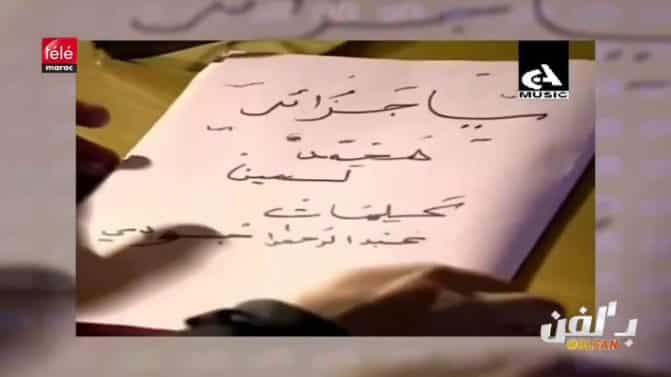 télé
maroc
MUSIC
يا جزائر
محمد
لمين
كلمات
عبد الرحمان
بالفن